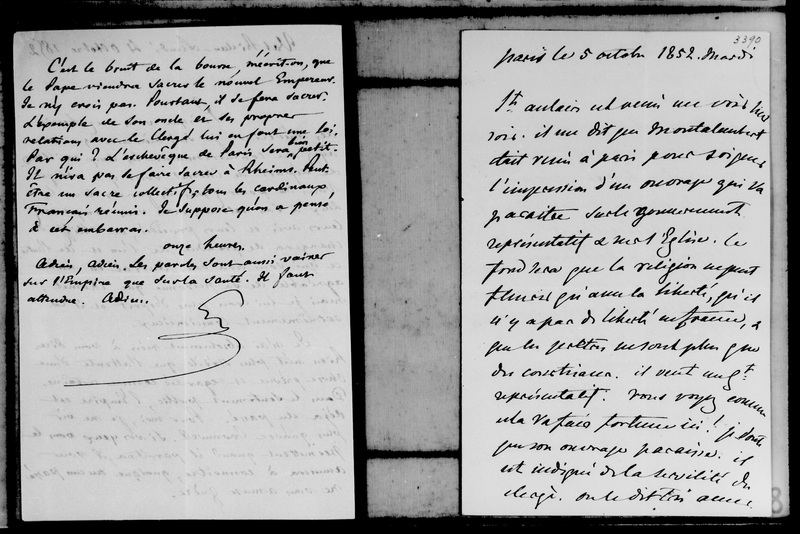 C'est le bruit de la bourse, m'écrit-on, que
le Pape viendra sacrer le nouvel Empereur.
Je n'y crois pas. Pourtant, il se fera sacrer.
L'exemple de son oncle et ses propres
relations avec le Clergé lui en font une loi.
Par qui ? L'archevêque de Paris sera bien petit.
Il n'ira pas se faire sacrer à Rheims. Peut-
être un sacre collectif, tous les cardinaux
Français réunis. Je suppose qu'on a pensé
à cet embarras.
onze heures.
Adieu, adieu. Les paroles sont aussi vaines
sur l'Empire que sur la santé. Il faut
attendre. Adieu.
3390
Paris le 5 octobre 1852. Mardi
St Aulaire est venu me voir hier
soir. il me dit que Montalembert
était venu à Paris pour soigner
l'impression d'un ouvrage qui va
paraître sur le gouvernement
représentatif & sur l'Eglise. le
fond sera que la religion ne peut
fleurir qu'avec la liberté, qu'il
n'y a pas de liberté en France, &
que les prêtres ne sont plus que
des courtisans. il veut un gt
représentatif. vous voyez comme
cela va faire fortune ici ! je doute
que son ouvrage paraisse. il
est indigné de la servilité du
clergé. on le dit très